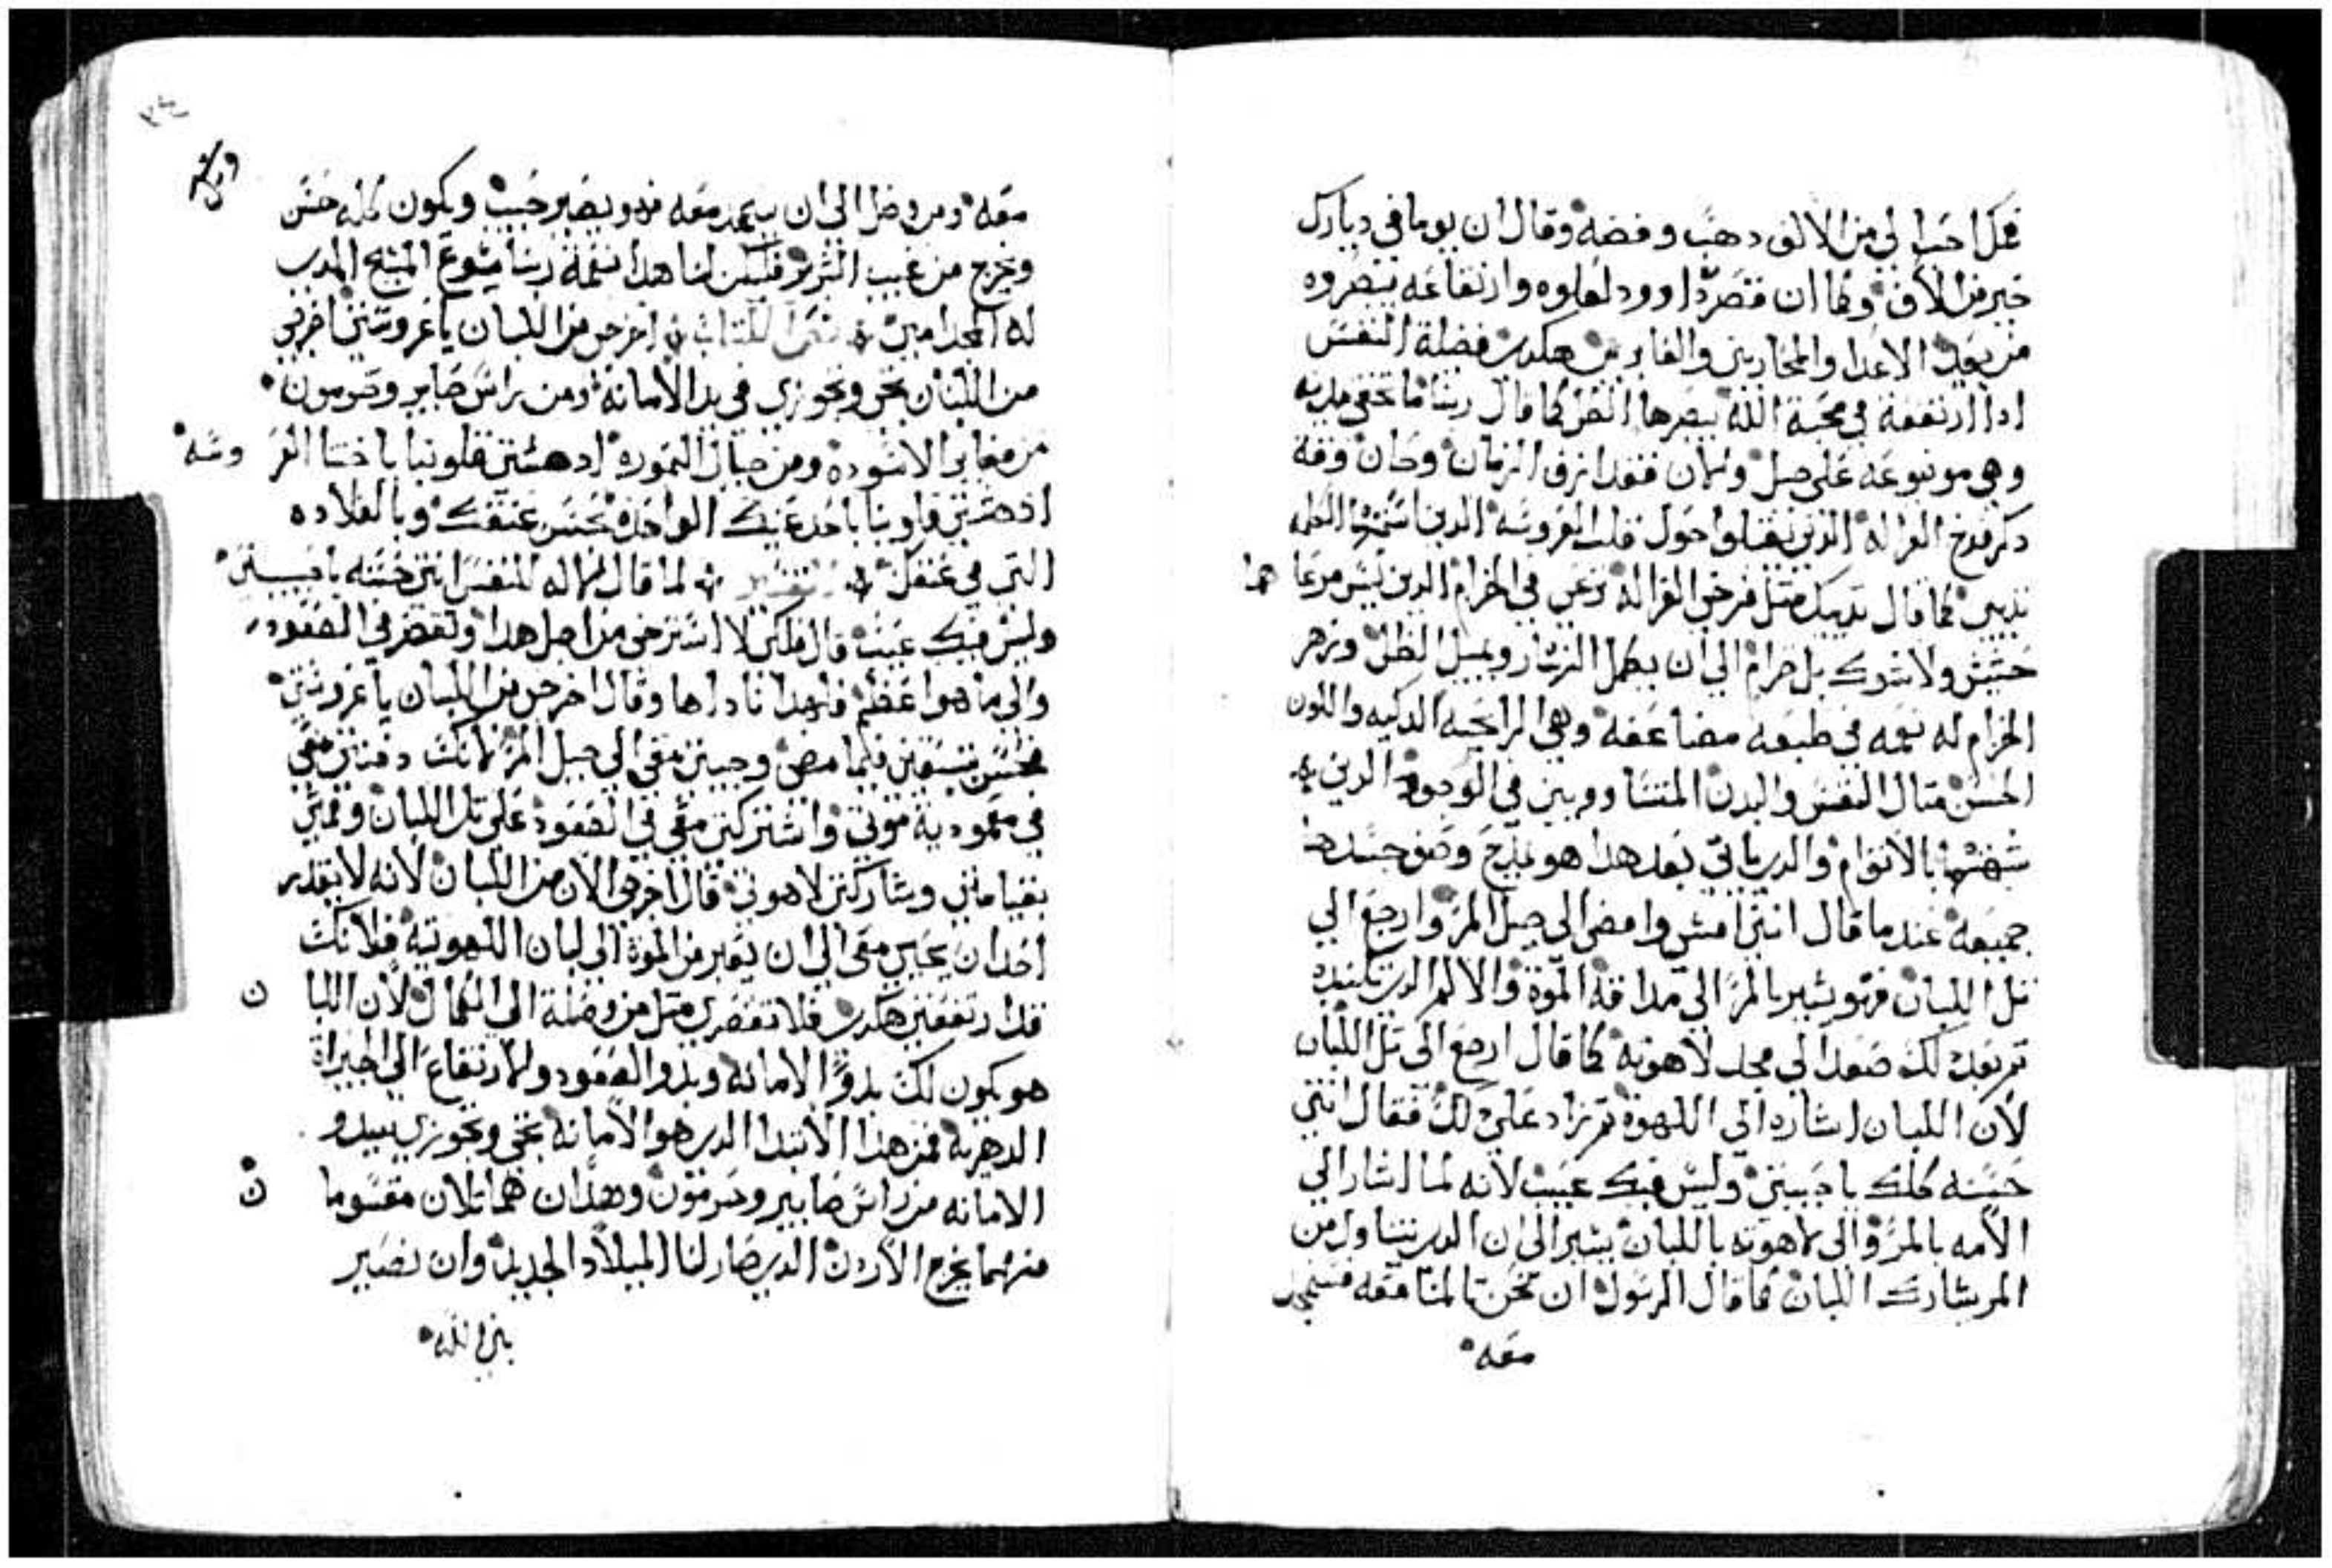 فمك احب الي من الالوف دهب وفضه وقال ان يوما في ديارك
خير من الاف وكما ان قصر داوود لعلوه وارتفاعه ينضروه
من بعد الاعدا والمحاربين والعابرين هكدي فضلة النفس
ادا ارتفعة في محبة الله يبصرها الكل كما قال ربنا ما تخفى مدينه
وهي موضوعه على جبل ولان فقد ازف الزمان وحان وقة
دكر فرخ الغزاله الدين يقبلوا حول قلب العروسه الدين اسمهما الكلمه
تديين كما قال تدييك متل فرخي الغزاله ترعى في الخزام الدين ليس مرعاهما
حشيش ولا شوك بل خزام الى ان يكمل النهار ويميل الظل وزهر
الخزام له نعمه في طبعه مضاعفه وهي الرايحه الدكيه واللون
الحسن متال النفس والبدن المتساوويين في الوجود الدين
شبهتهما بالاتوام والدي ياتي بعد هدا هو مديح وصف جسدها
جميعه عندما قال انني امشي وامضي الى جبل المر وارجع الي
تل اللبان فهو يشير بالمر الي مداقة الموة والالم الدي تكبده
تم بعد دلك صعد الي مجد لاهوته كما قال ارجع الى تل اللبان
لان اللبان اشاره الي اللاهوة تم زاد على دلك فقال انتي
حسنه كلك يا حبيبتي وليس فيك عيب لانه لما اشار الي
الامه بالمر والى لاهوته باللبان يشير الى ان الدي يتناول من
المر يشارك اللبان كما قال الرسول ان نحن تالمنا معه فسنمجد
معه
معه ومن وصل الى ان يتمجد معه فهو يصير حبيب ويكون كله حسن
ويخرج من عيب الشرير فليكن لنا هدا بنعمة ربنا يسوع المسيح الدي
له المجد امين نص الكتاب اخرجي من اللبان يا عروستي اخرجي
من اللبنان تجي وتجوزي في بدا الامانه ومن راس صابير وحرمون
من مغاير الاسوده ومن جبال النموره ادهشتي قلوبنا يا اختنا العروسه
ادهشتي قلوبنا باحد عينيك الواحده بحسن عنقك وبالقلاده
التي في عنقك تفسير لما قال الاله للنفس انتي حسنه يا حبيبتي
وليس فيك عيب قال فلكي لا استرخي من اجل هدا وتقصر في الصعود
والى ما هو اعظم فلهدا ناداها وقال اخرجي من اللبان يا عروستي
في معمودية موتي واشتركتي معي في الصعود على تل اللبان وقمتي
بقيامتي وشاركتي لاهوتي قال اخرجي الان من اللبان لانه لا يقدر
احد ان يجي معي الى ان يعبر من الموة الى لبان اللاهوتية فلانك
قد ارتفعتي هكدي فلا تقصري متل من وصلة الي الكمال لان اللبان
هو يكون لك بدو الامانه وبدو الصعود والارتفاع الى الخيراة
الدهريه فمن هدا الابتدا الدي هو الامانه تجي وتجوزي ببدو
الامانه من راس صابير وحرمون وهدان هما تلان مقسومان
منهما يخرج الاردن الدي صار لنا الميلاد الجديد وان نصير
بني الله